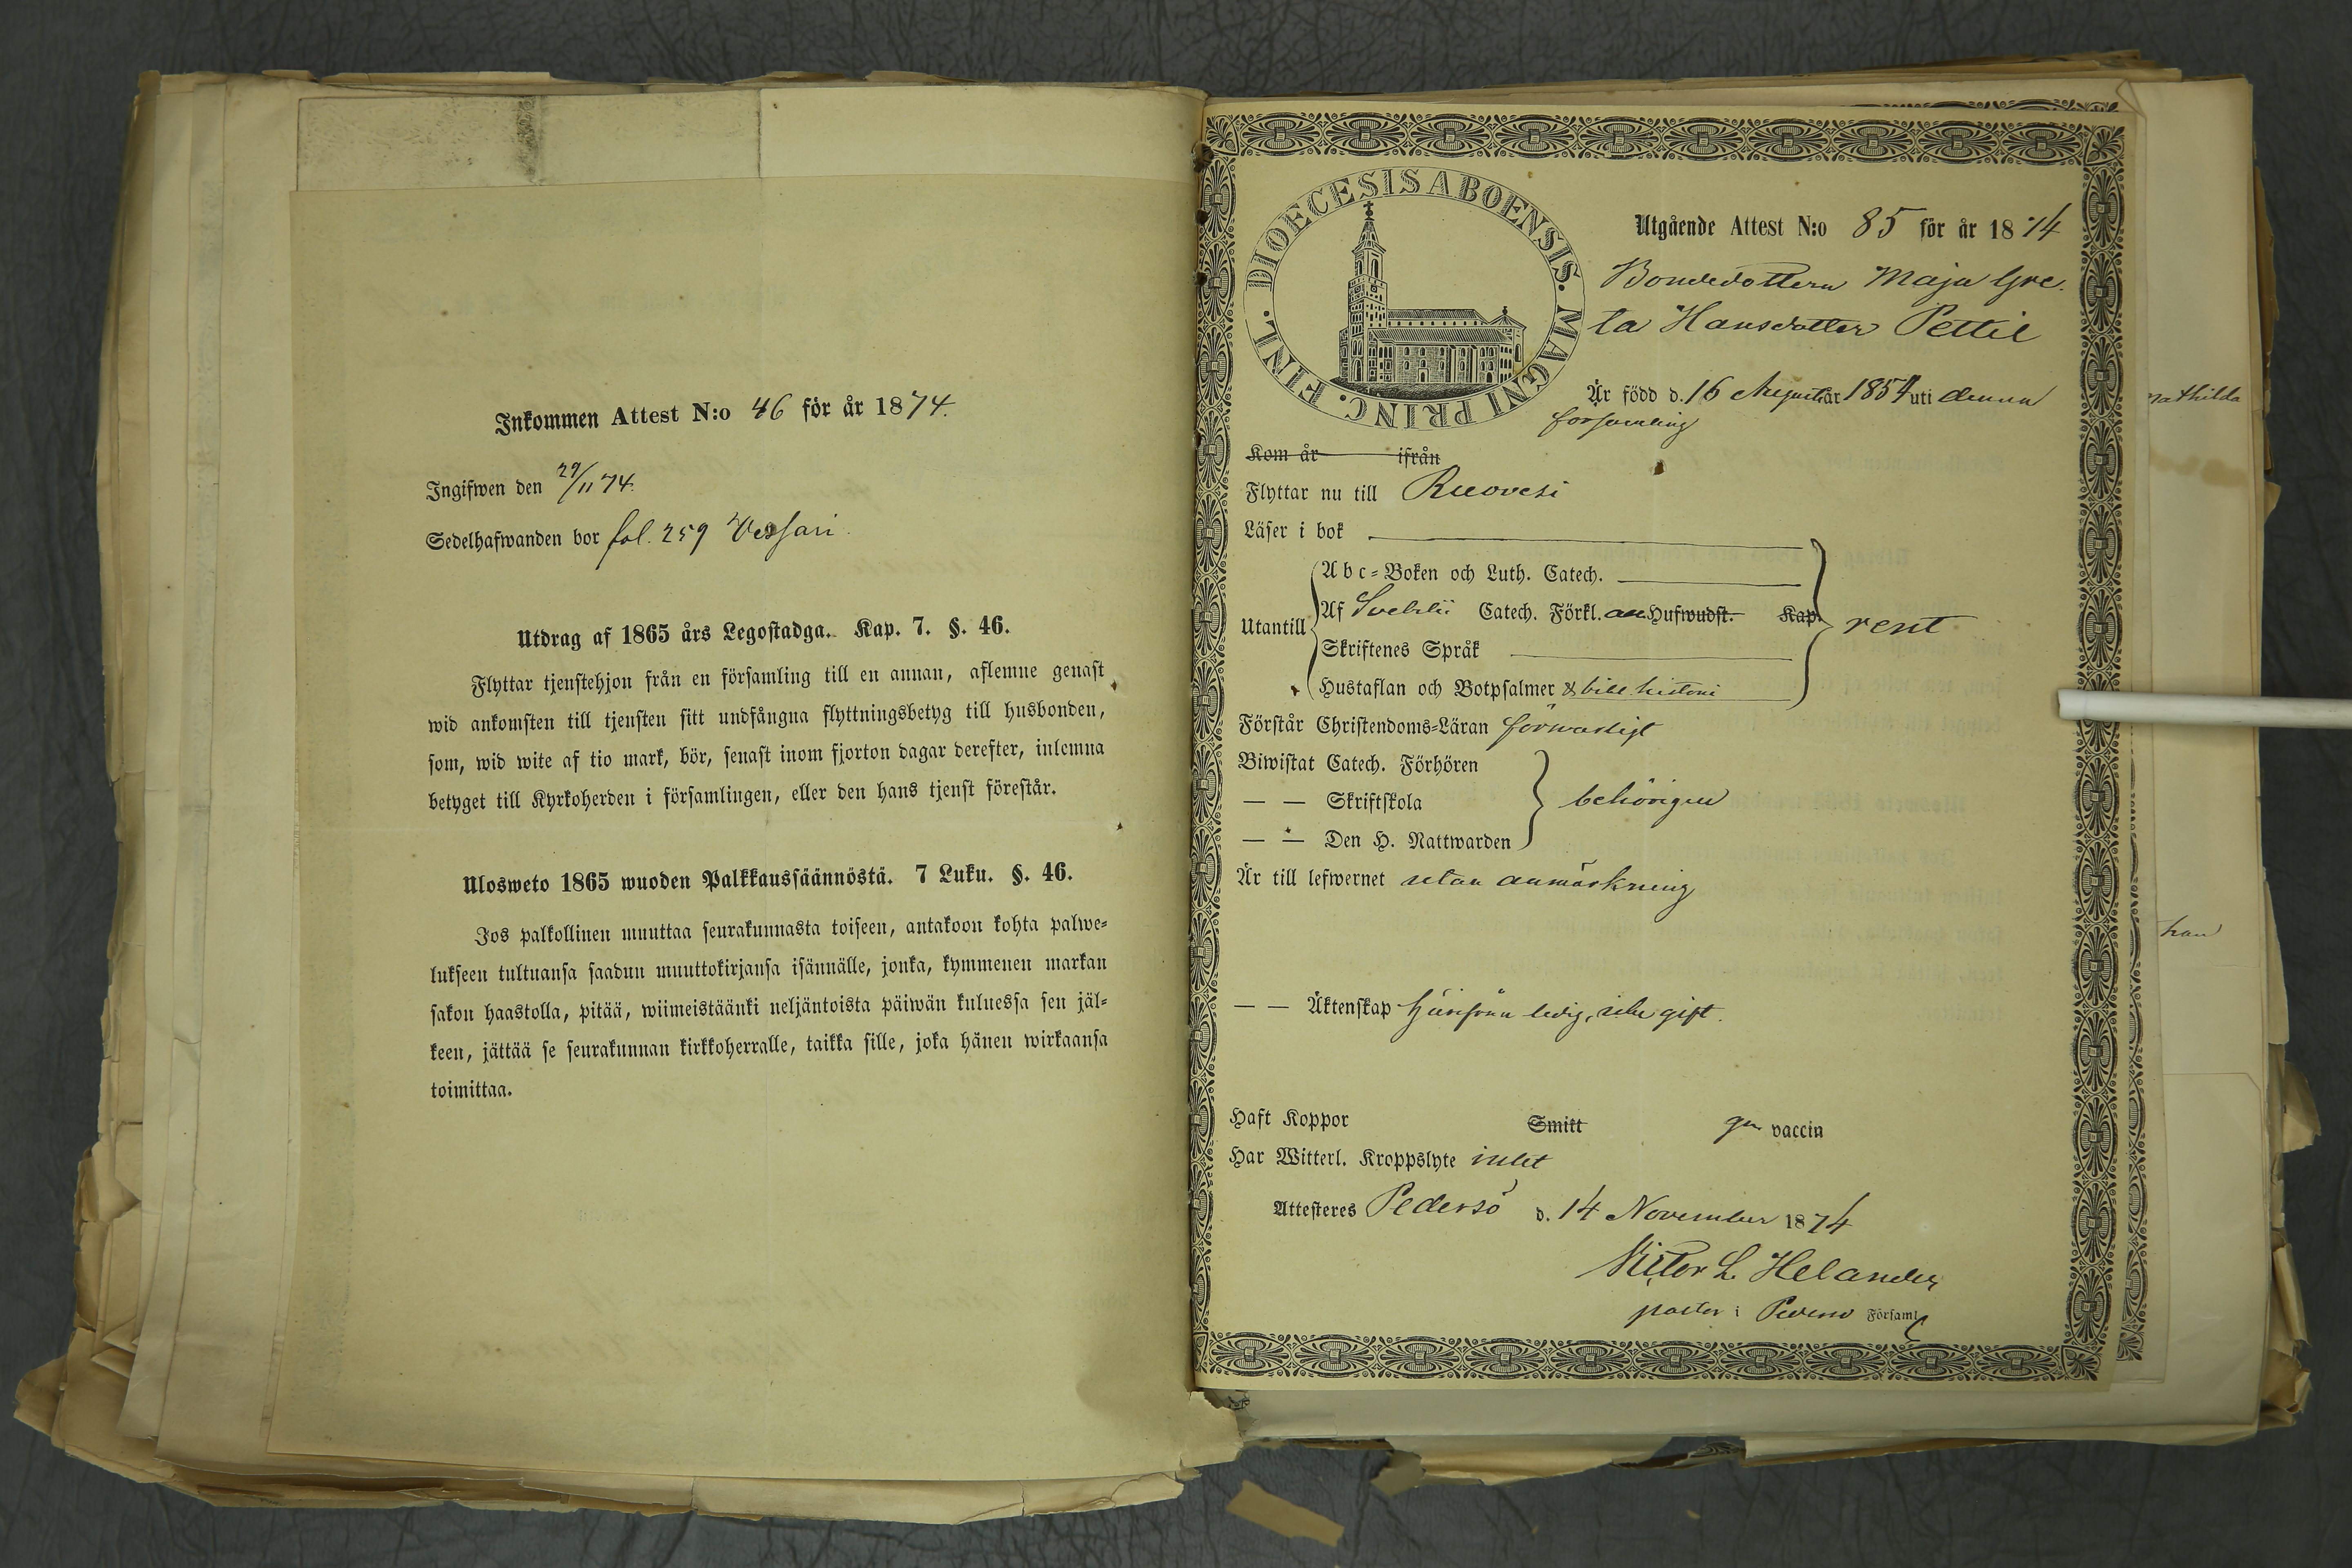 Inkommen Attest N:o 46 för år 1874.
Ingifwen den 29/11 74.
Sedelhafwanden bor fol. 259 Vessari.
Utdrag af 1865 års Legostadga. Kap. 7. §. 46.
Flyttar tjenstehjon från en församling till en annan, aflemne genast
wid ankomsten till tjensten sitt undfångna flyttningsbetyg till husbonden,
som, wid wite af tio mark, bör, senast inom fjorton dagar derefter, inlemna
betyget till Kyrkoherden i församlingen, eller den hans tjenst förestår.
Ulosweto 1865 wuoden Palkkaussäännöstä. 7 Luku. §. 46.
Jos palkollinen muuttaa seurakunnasta toiseen, antakoon kohta palwe-
lukseen tultuansa saadun muuttokirjansa isännälle, jonka, kymmenen markan
sakon haastolla, pitää, wiimeistäänki neljäntoista päiwän kuluessa sen jäl-
keen, jättää se seurakunnan kirkkoherralle, taikka sille, joka hänen wirkaansa
toimittaa.
DIOECESIS ABOENSIS. MAGNI PRINC. FINL.
Utgående Attest N:o 85 för år 1874
Bondedottern Maja Gre-
ta Hansdotter Pettil
Är född d. 16 Augusti år 1854 uti denna
församling
Kom år ifrån
Flyttar nu till Ruovesi
Läser i bok
Utantill
Abc-Boken och Luth. Catech.
Af Svebilii Catech. Förkl. Hufwudst. Kap.
rent
Skriftenes Språk
Hustaflan och Botpsalmer & bibl. histori
Förstår Christendoms-Läran försvarligt
Biwistat Catech. Förhören
— — Skriftskola
behörigen
— — Den H. Nattwarden
Är till lefwernet utan anmärkning
— — Äktenskap ledig, icke gift.
Haft Koppor Smitt gm vaccin
Har Witterl. Kroppslyte intet
Attesteres Pedersö d. 14 November 1874
Victor L. Helander
pastor i Pedersö Församl
mathilda
han